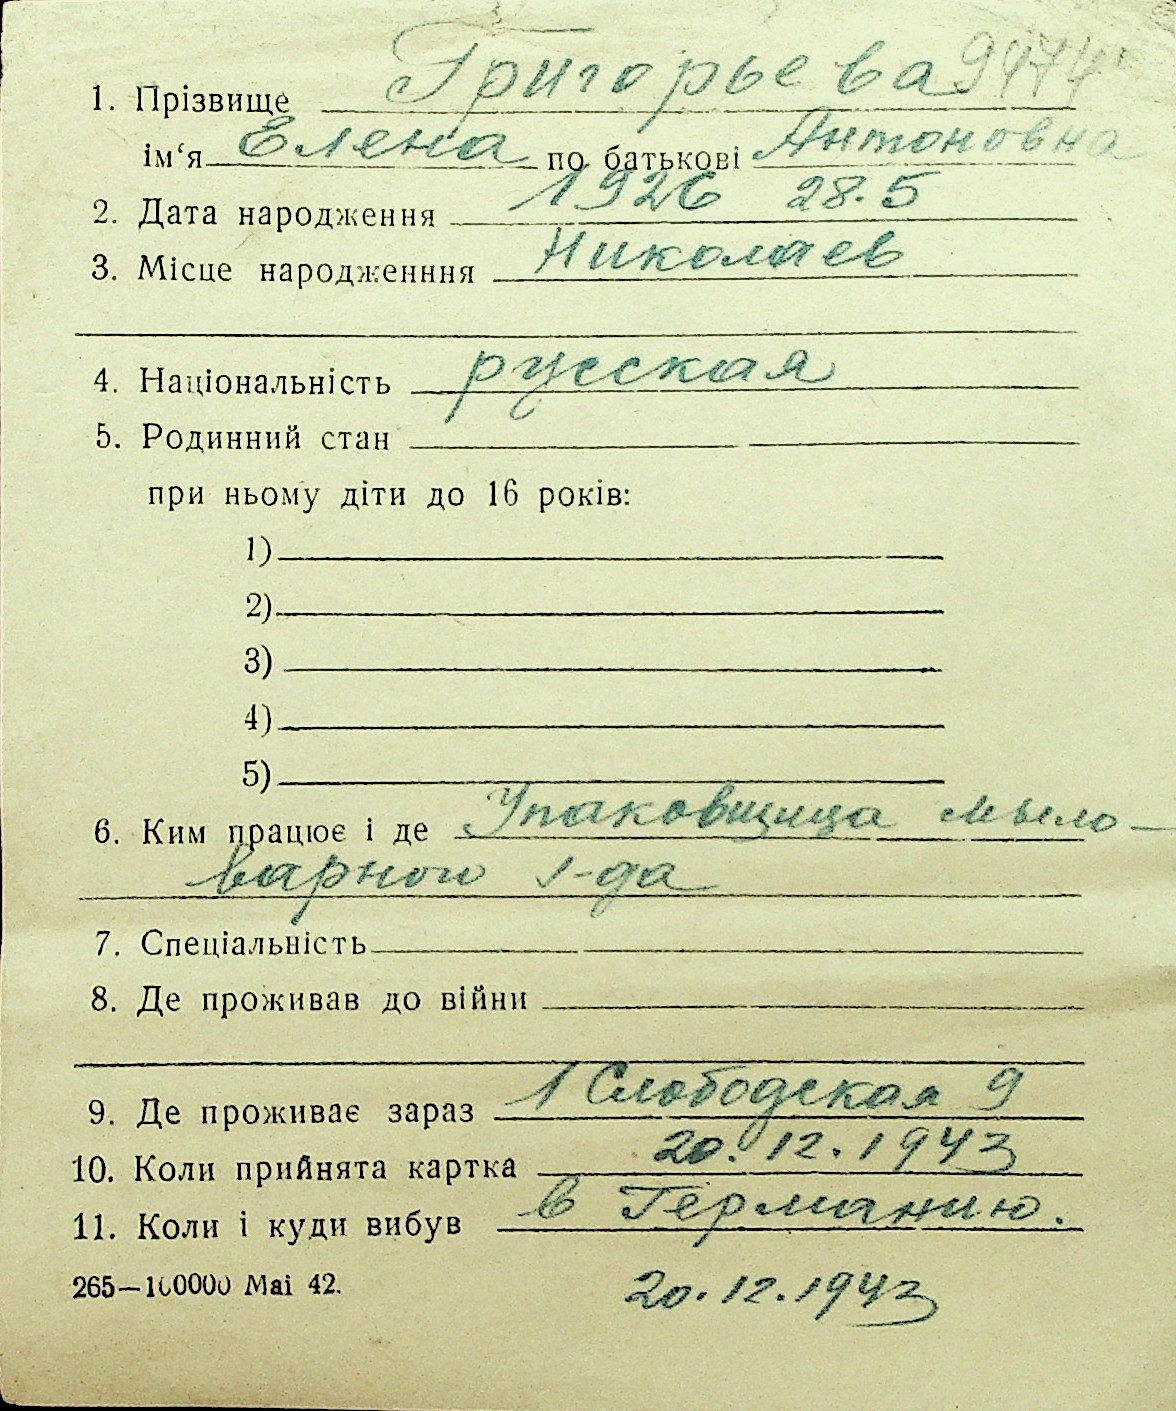 1. Прізвище Григорьева 9474
ім‘я Елена по батькові Антоновна
2. Дата народження 1926 28.5
3. Місце народженння Николаев
4. Національність русская
5. Родинний стан
при ньому діти до 16 років:
1)
2)
3)
4)
5)
6. Ким працює і де Упаковщица мыло-
варного з-да
7. Спеціальність
8. Де проживав до війни
9. Де проживає зараз 1 Слободская 9
10. Коли прийнята картка 20.12.1943
11. Коли і куди вибув в Германию.
265—100000 Mai 42. 20.12.1943